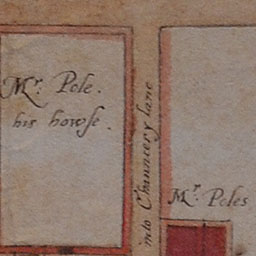 Mr. Pole.
his howse.
into Chauncery lane
Mr. Poles